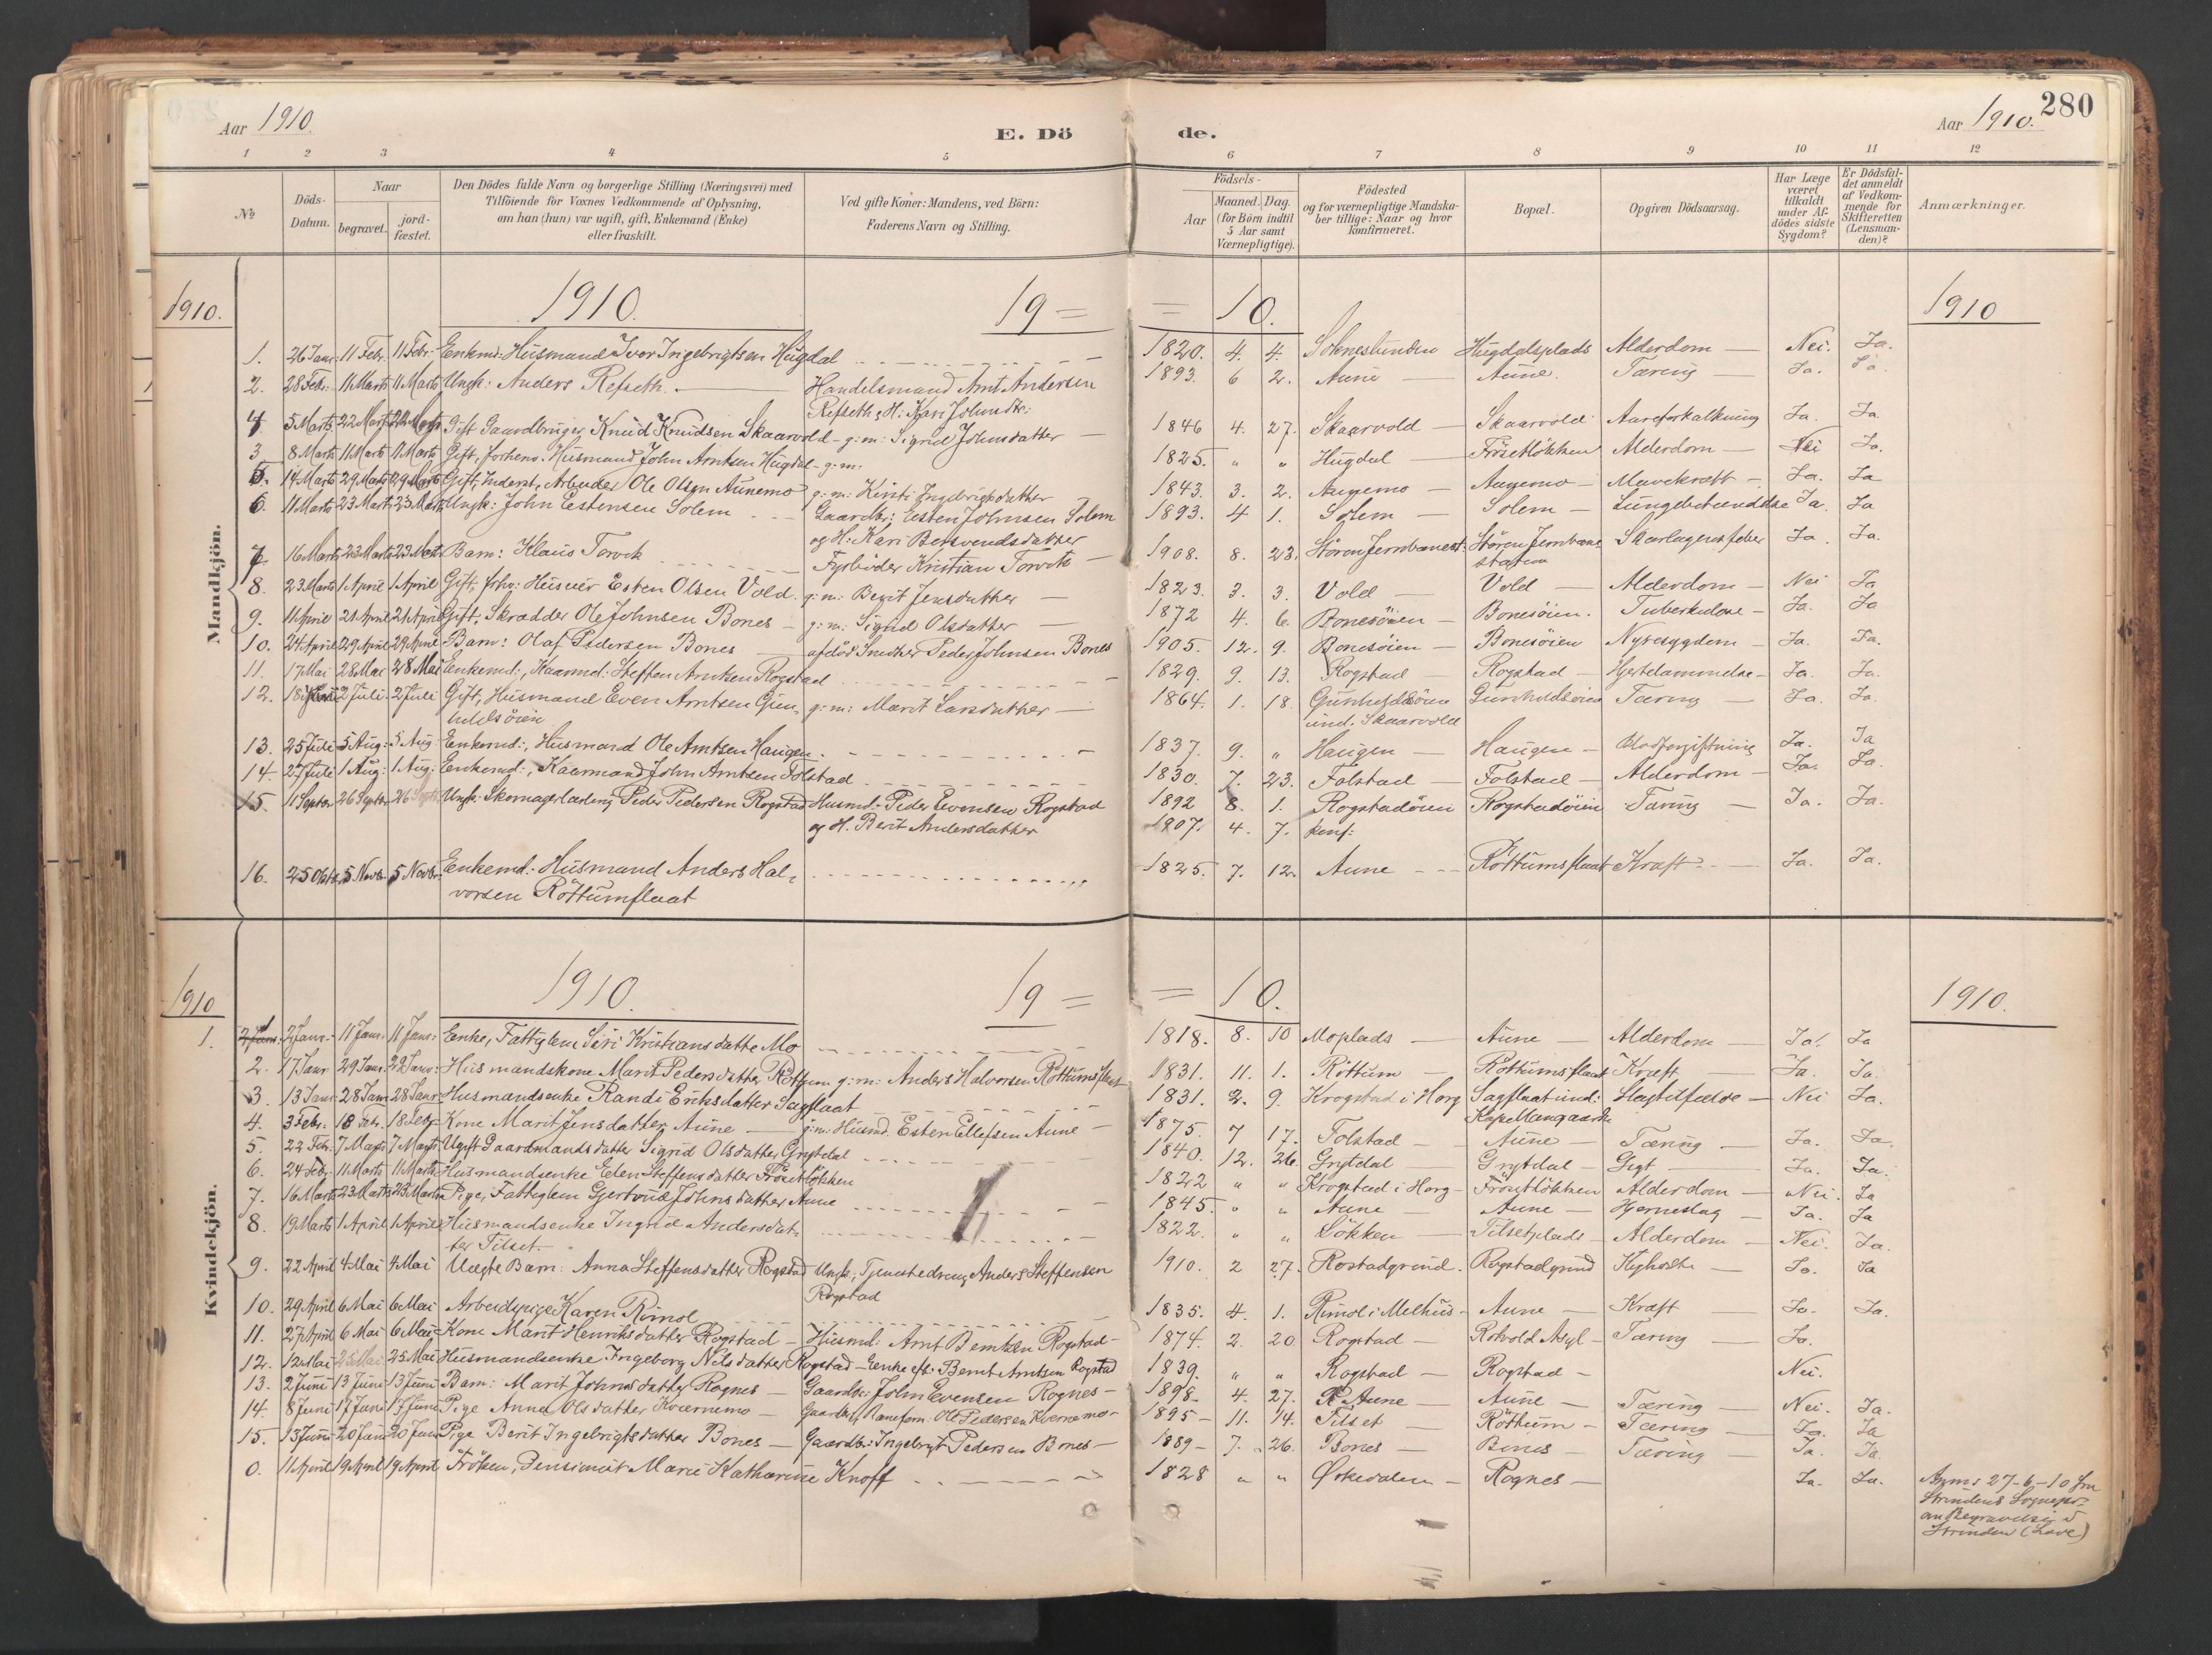 280
Aar 1910.
E. Dö de.
Aar 1910.
1 2 3 4 5 6 7 8 9 10 11 12
№
Döds-Datum.
Naar
begravet.
jordfæstet.
Den Dödes fulde Navn og borgerlige Stilling (Næringsvei) med
Tilföiende for Voxnes Vedkommende af Oplysning,
om han (hun) var ugift, gift, Enkemand (Enke)
eller fraskilt.
Ved gifte Koner: Mandens, ved Börn:
Faderens Navn og Stilling.
Födsels-
Aar
Maaned. Dag.
(for Börn indtil
5 Aar samt
Værnepligtige).
Födested
og for værnepligtige Mandska-
ber tillige: Naar og hvor
konfirmeret.
Bopæl.
Opgiven Dödsaarsag.
Har Læge
været
tilkaldt
under Af-
dödes sidste
Sygdom?
Er Dödsfal-
det anmeldt
af Vedkom-
mende for
Skifteretten
(Lensman-
den)?
Anmærkninger.
Mandkjön.
1910. 1910. 19 = = 10. 1910
1. 26 Janr. 11 Febr. 11 Febr. Enkemd: Husmand Iver Ingebrigtsen Hugdal — 1820. 4. 4. Soknestunden Hugdalsplads Alderdom — Nei. Ja.
2. 28 Febr. 11 Marts 11 Marts Ungk: Anders Refseth. — Handelsmand Arnt Andersen 1893. 6 2. Aune — Aune. Tæring — Ja. Ja.
Refseth & H: Kari Johnsdtr:
4 5 Marts 22 Marts 22 Marts Gift Gaardbruger Knud Knudsen Skaarvold - g: m: Sigrid Johnsdatter — 1846 4. 27. Skaarvold — Skaarvold Aareforkalkning Ja. Ja.
3 8 Marts 11 Marts 11 Marts Gift, forhenv. Husmand John Arntsen Hugdal - g: m: 1825. " " Hugdal — Frösetlökken Alderdom — Nei Ja.
5. 14 Marts 29 Marts 29 Marts Gift, Inderst, Arbeider Ole Olsen Aunemo g: m: Kirsti Ingebrigtsdatter 1843. 3. 2. Aunemo — Aunemo — Mavekræft — Ja. Ja
6. 11 Marts 23 Marts 23 Marts Ungk: John Estensen Solem - - Gaardbr: Esten Johnsen Solem 1893. 4 1. Solem — Solem — Lungebetændelse Ja. Ja
og H: Kari Bersvendsdatter
7 16 Marts 23 Marts 23 Marts Barn: Klaus Torvik Fyrböder Kristian Torvik — 1908. 8. 23. Stören Jernbanest. Stören Jernbane- Skarlagensfeber Ja. Ja.
station
8. 23 Marts 1 April 1 April Gift, frhv: Husmd Esten Olsen Vold. g: m: Berit Jensdatter — 1823. 3. 3. Vold — Vold — Alderdom — Nei Ja
9. 11 April 21 April 21 April Gift, Skrædder Ole Johnsen Bones - g: m: Sigrid Olsdatter — 1872 4. 6. Bonesöien — Bonesöien. Tuberkulose — Ja. Ja
10. 24 April 29 April 29 April Barn: Olaf Pedersen Bones — afdöd Snedker Peder Johnsen Bones 1905. 12. 9. Bonesöien — Bonesöien Nyresygdom — Ja. Ja.
11. 17 Mai 28 Mai 28 Mai Enkemd:, Kaarmd: Steffen Arntsen Rogstad 1829. 9. 13. Rogstad — Rogstad — Hjertelammelse — Ja. Ja.
12. 18 Juni 2 Juli 2 Juli Gift, Husmand Even Arntsen Gun- g: m: Marit Larsdatter — 1864. 1. 18. Gunhildsöien Gunhildsöien Tæring — Ja. Ja.
hildsöien und. Skaarvold
13. 25 Juli 5 Aug: 5 Aug: Enkemd:, Husmand Ole Arntsen Haugen. 1837. 9. " Haugen — Haugen — Blodforgiftning Ja. Ja
14. 27 Juli 1 Aug: 1 Aug: Enkemd:, Kaarmand John Arntsen Folstad 1830. 7. 23. Folstad — Folstad — Alderdom — Ja. Ja.
15. 11 Septbr 26 Septbr 26 Septbr Ungk: Skomagerlærling Peder Pedersen Rogstad Husmd: Peder Evensen Rogstad 1892 8. 1. Rogstadöien Rogstadöien Tæring — Ja. Ja.
og H. Berit Andersdatter 1907. 4. 7. konf:
16. 25 Oktbr. 5 Novbr. 5 Novbr. Enkemd: Husmand Anders Hal- 1825. 7. 12. Aune - - Röttumsflaat Kræft - Ja. Ja.
vorsen Röttumflaat
Kvindekjön.
1910 1910. 19 = = 10. 1910.
1. 2 Janr. 11 Janr. 11 Janr. Enke, Fattiglem Siri Kristiansdatter Mo 1818. 8. 10 Moplads — Aune — Alderdom — Ja. Ja
2. 17 Janr 29 Janr. 29 Janr. Husmandskone Marit Pedersdatter Röttum g: m: Anders Halvorsen Röttumsflaat 1831. 11. 1. Röttum — Röttumsflaat Kræft — Ja. Ja.
3. 13 Janr 28 Janr 28 Janr. Husmandsenke Randi Eriksdatter Sagflaat 1831. 2. 9. Krogstad i Horg Sagflaat und: Slagtilfælde — Nei Ja.
4. 3 Febr. 18 Febr. 18 Febr. Kone Marit Jensdatter Aune — g: m: Husmd. Esten Ellefsen Aune — 1875. 7 17. Folstad — Aune — Tæring — Ja. Ja.
5. 22 Febr. 7 Marts 7 Marts Ugift Gaardmandsdatter Sigrid Olsdatter Grytdal 1840. 12. 26. Grytdal — Grytdal — Gigt — Ja. Ja.
6. 24 Febr. 11 Marts 11 Marts Husmandsenke Eden Steffensdatter Frösetlökken 1822 " " Krogstad i Horg — Frösetlökken Alderdom — Nei. Ja
7. 16 Marts 23 Marts 23 Marts Pige, Fattiglem Gjertrud Johnsdatter Aune 1845. " " Aune — Aune — Hjerneslag — Ja. Ja
8. 19 Marts 1 April 1 April Husmandsenke Ingrid Andersdat- 1822. " " Lökken — Tilsetplads — Alderdom — Nei. Ja.
ter Tilset.
9. 22 April 4 Mai 4 Mai Uægte Barn: Anna Steffensdatter Rogstad Ungk:, Tjenestedreng Anders Steffensen 1910. 2 27. Rostadgrind. Rogstadgrind Kighoste — Ja. Ja
Rogstad
10. 29 April 6 Mai 6 Mai Arbeidspige Karen Rimol 1835. 4. 1. Rimol i Melhus — Aune — Kræft — Ja. Ja.
11. 27 April 6 Mai 6 Mai Kone Marit Henriksdatter Rogstad — Husmd: Arnt Berntsen Rogstad — 1874. 2. 20. Rogstad — Rotvold Asyl — Tæring — Ja.
12. 12 Mai 25 Mai 25 Mai Husmandsenke Ingeborg Nilsdatter Rogstad — Enke eft. Bernt Arntsen Rogstad 1839. " " Rogstad — Rogstad — Nei.
13. 2 Juni 13 Juni 13 Juni Barn: Marit Johnsdatter Rognes — Gaardbr: John Evensen Rognes — 1898 — 4. 27. Aune — Aune — Tæring — Nei. Ja.
14. 8 Juni 17 Juni 17 Juni Pige Anna Olsdatter Kværnemo — Gaardbr, Baneform. Ole Pedersen Kvernemo — 1895 — 11. 14. Tilset Röttum — Tæring — Ja. Ja
15. 13 Juni 20 Juni 20 Juni Pige Berit Ingebrigtsdatter Bones — Gaardbr: Ingebrigt Pedersen Bones — 1889 — 7. 26. Bones — Bones — Tæring — Ja. Ja.
0. 11 April 19 April 19 April Fröken, Pensionist Marie Katharine Knoff 1828 " " Ørkedalen — Rognes — Ja. Ja. Anms 27-6-10 fra
Strindens Sognepr.
Begravelse
Strinden (Lade)